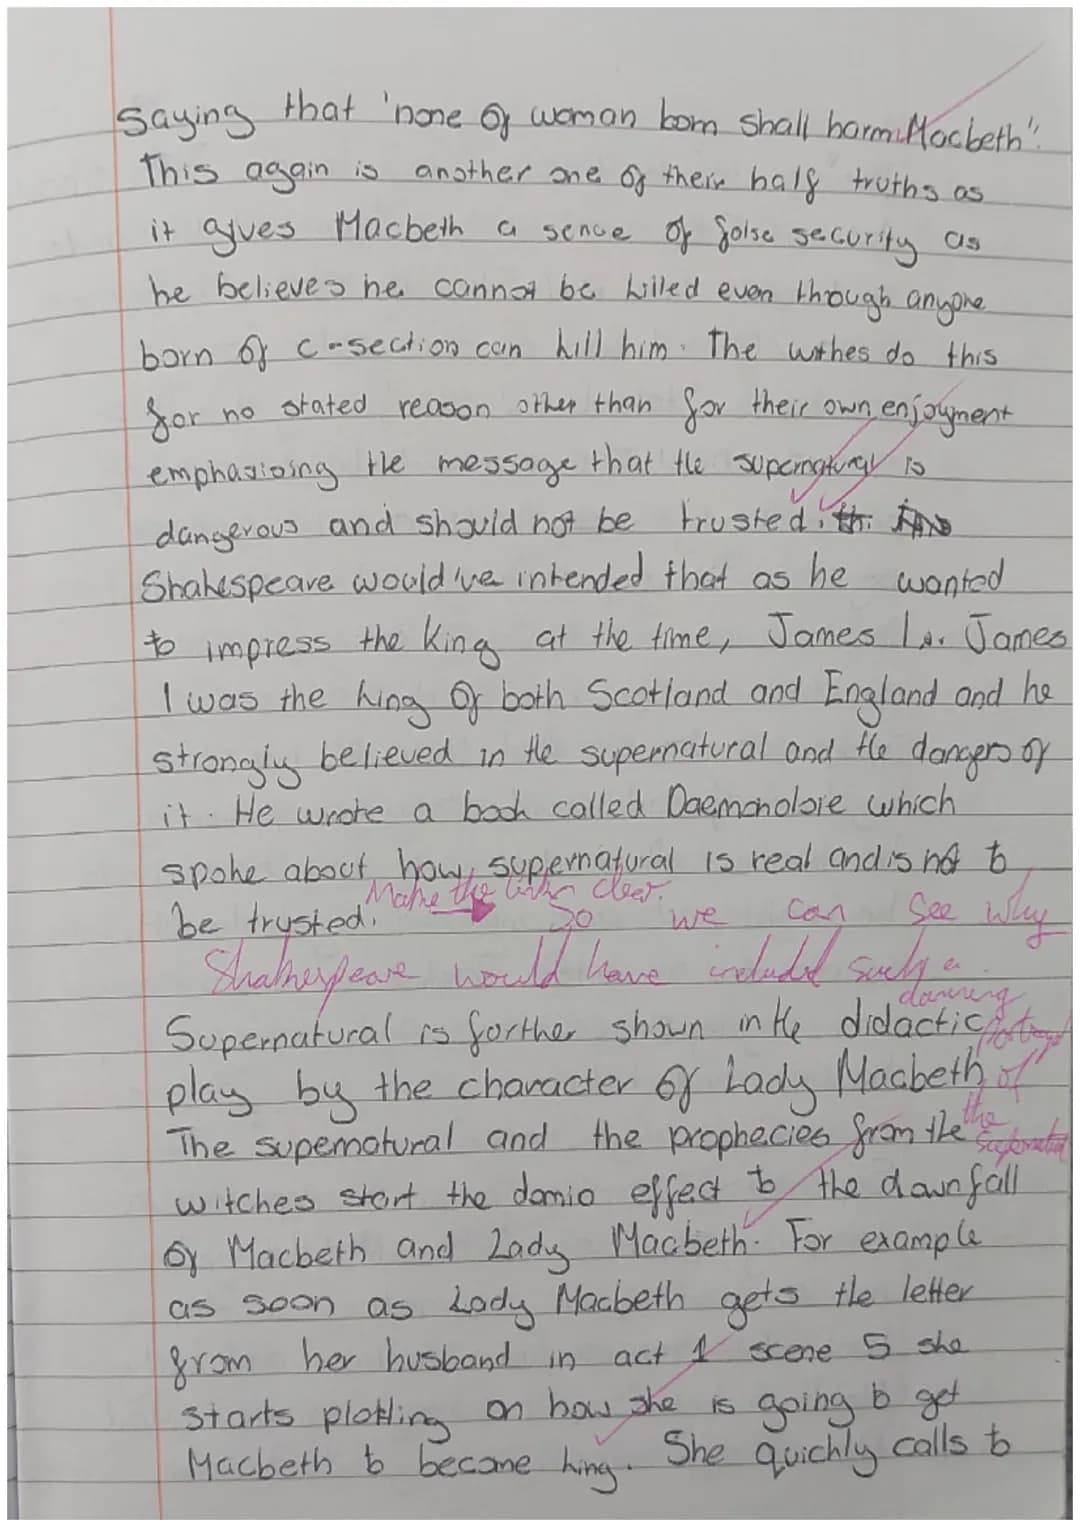 saying that 'none of woman born shall harm Macbeth".
This again is another one of their half truths as
it gives Macbeth a sence of false security as
he believes he cannot be killed even though anyone
born of c-section can kill him. The withes do this
for no stated reason other than for their own enjoyment
emphasising the message that the supernatural is
dangerous and should not be trusted.
Shakespeare would've intended that as he wanted
to impress the King at the time, James I. James
I was the king of both Scotland and England and he
strongly believed in the supernatural and the dangers of
it. He wrote a book called Daemonolgie which
spoke about how supernatural is real and is not to
be trusted. Make the links clear. So we can see why
Shakespeare would have included such a
damning
Supernatural is further shown in the didactic portrayal
play by the character of Lady Macbeth of
The supernatural and the prophecies from the the supernatural
witches start the domio effect to the downfall
of Macbeth and Lady Macbeth. For example
as soon as Lady Macbeth gets the letter
from her husband in act 1 scene 5 she
starts plotting on how she is going to get
Macbeth to become king. She quickly calls to